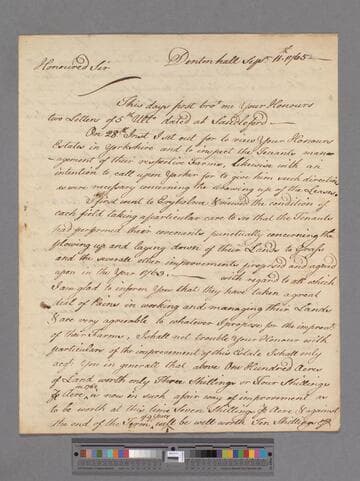 Denton hall Sept. 11th 1765
Honoured Sir
This days post bro't me Your Honours
two Letters of 5th dated at Sandleford
On 28th I set out for to view Your Honours
Estates in Yorkshire and to inspect the Tenants man-
agement of their respective Farms, likewise with an
intention to call upon Yarker for to give him such directions
were necessary concerning the drawing up of the Leases
I first went to & viewed the condition of
each field taking a particular care to see that the Tenants
had performed their covenants punctually concerning the
plowing up and laying down of their Lands to Grass
and the severale other improvements proposed and agreed
upon in the Year 1763: with regard to all which
I am glad to inform You that they have taken a great
dele of Pains in working and managing their Lands
& are very agreeable to whatever I propose for the improvmt.
of their Farms, I shall not trouble Your Honour with
particulars of the improvement of this Estate I shall only
acqt. You in generall that above One Hundred Acres
of Land worth only Three Shillings or Four Shillings
p Acre, is now in such a fair way of improvement as
to be worth at this time Seven Shillings p Acre & against
the end of the Term will be well worth Ten Shillings p